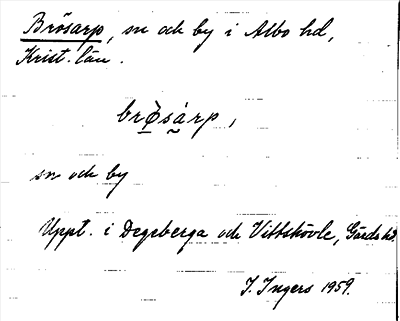 Brösarp, sn och by i Albo hd,
Krist. län.
brøsárp,
sn och by
Uppt. i Degeberga och Vittskövle, Gärds hd.
I. Ingers 1959.